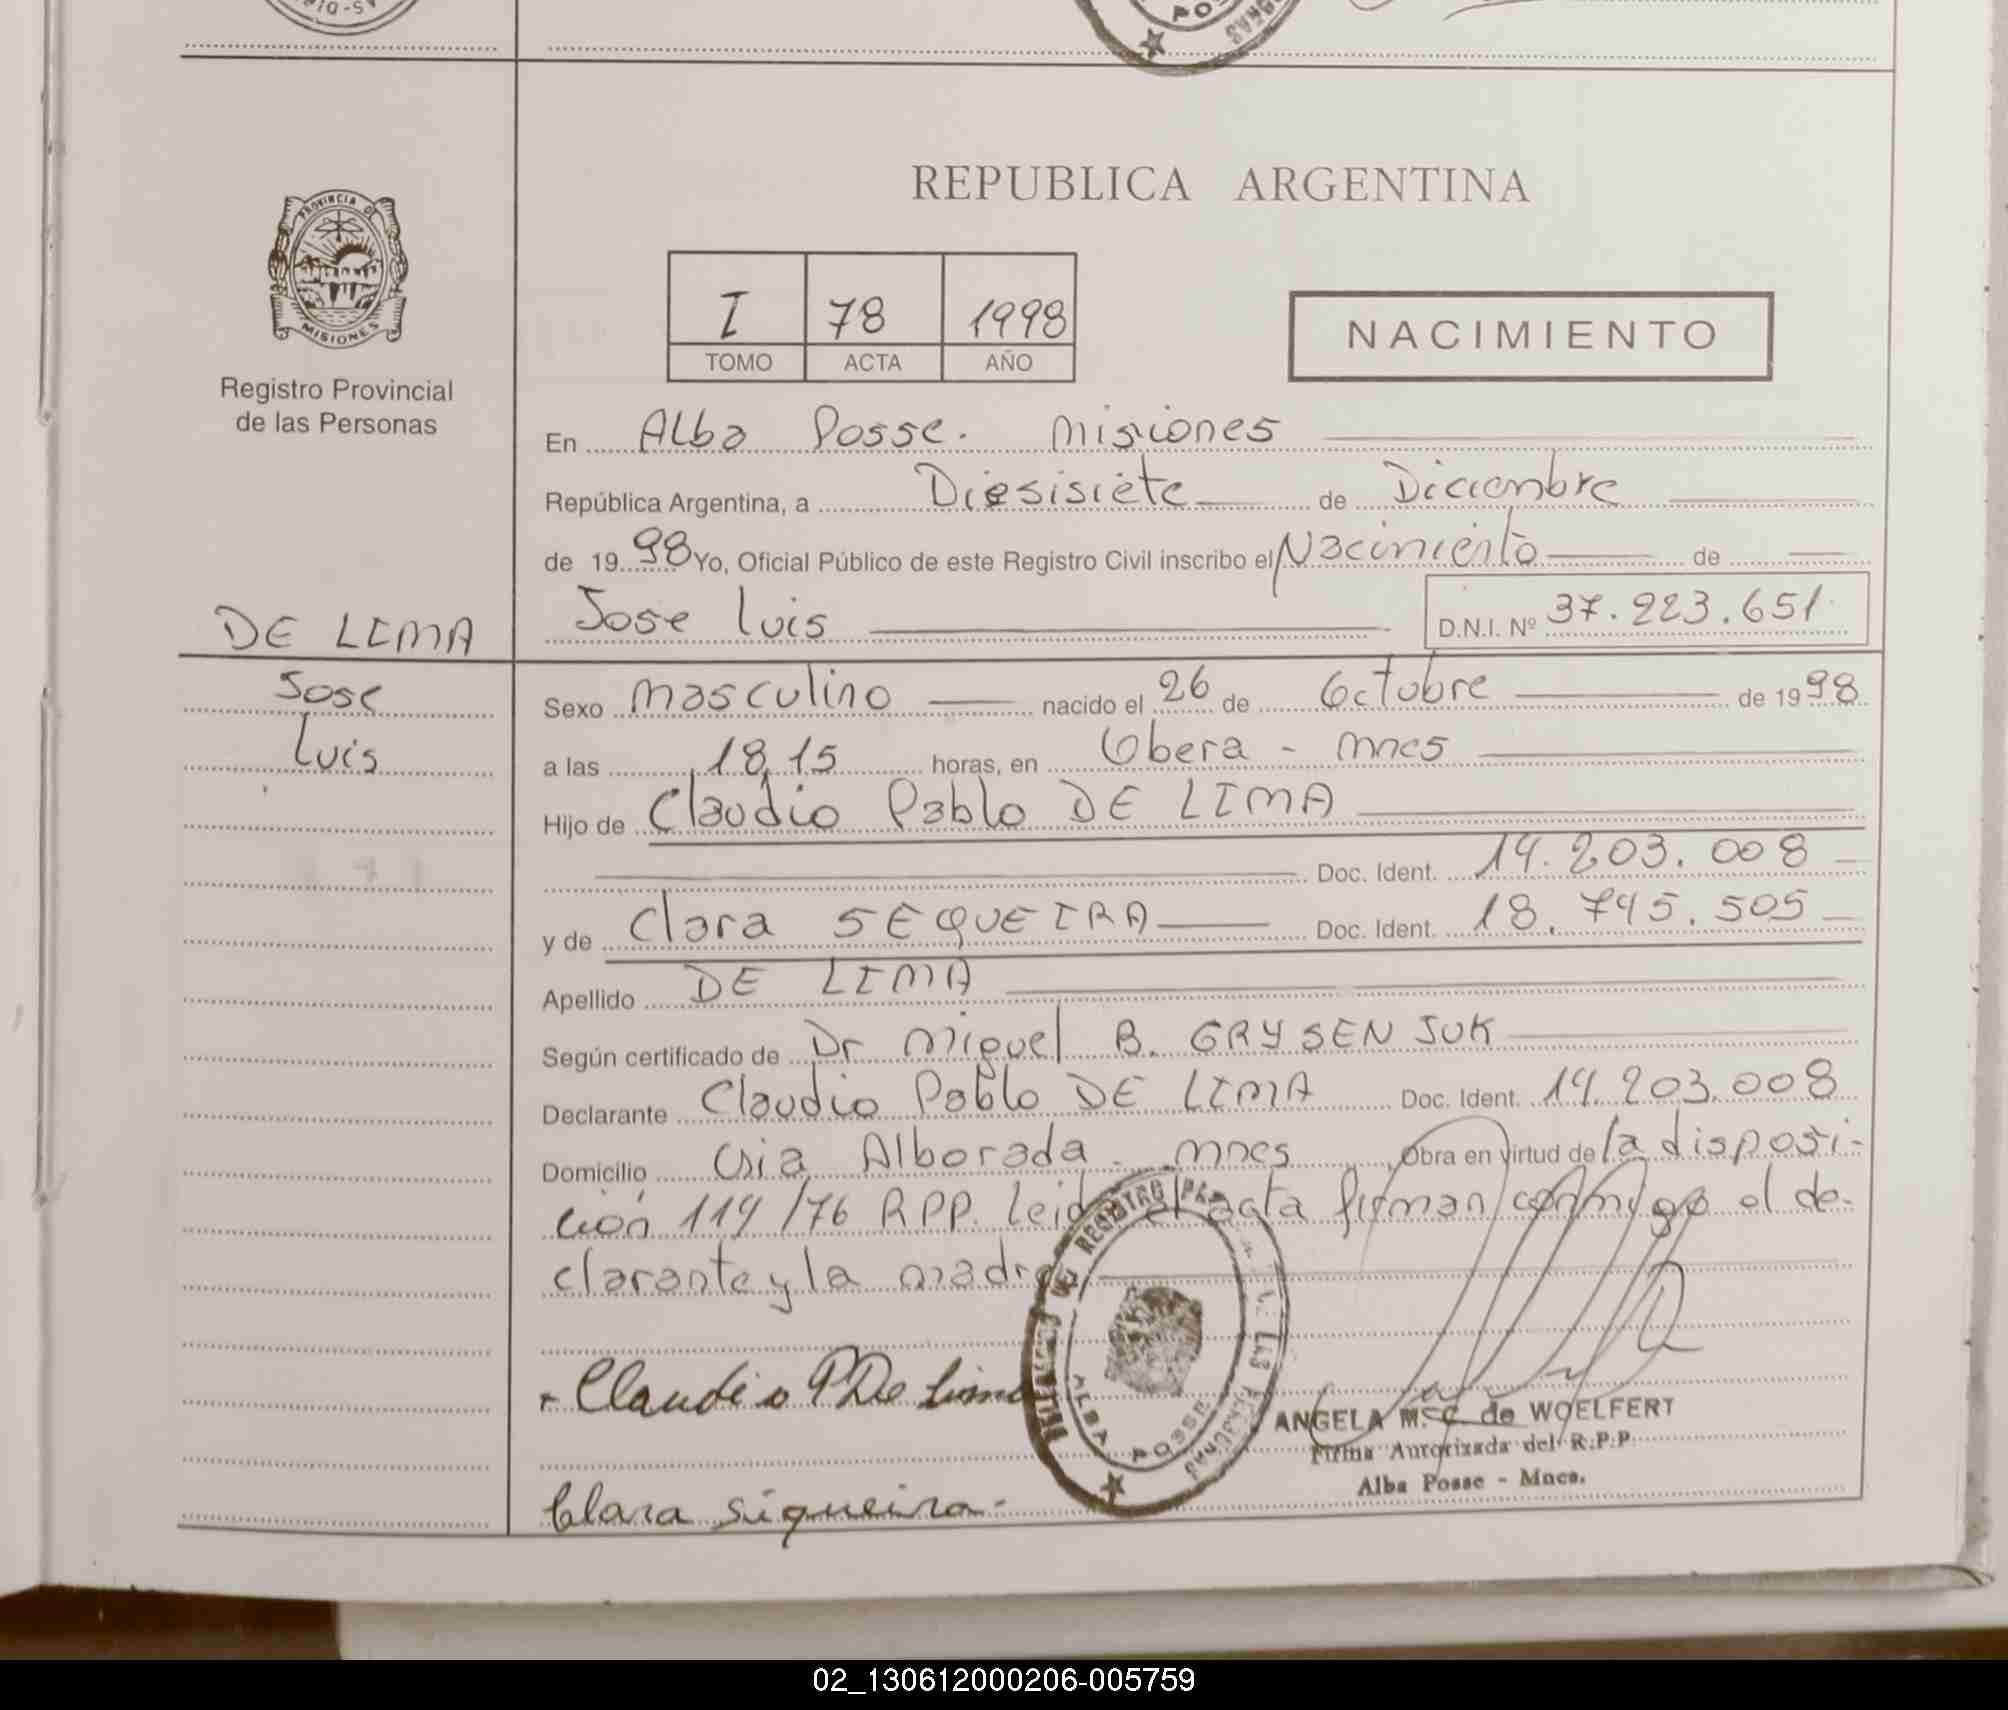 REPUBLICA ARGENTINA
PROVINCIA DE
MISIONES
Registro Provincial
de las Personas
I 78 1998
TOMO ACTA AÑO
NACIMIENTO
En Alba Posse. Misiones
República Argentina, a Diesisiete de Diciembre
de 1998 Yo, Oficial Público de este Registro Civil inscribo el Nacimiento de
DE LIMA
Jose Luis D.N.I. Nº 37.223.651
Jose
Luis
Sexo masculino nacido el 26 de Octubre de 1998
a las 18,15 horas, en Obera - mnes
Hijo de Claudio Pablo DE LIMA
Doc. Ident. 14.203.008
y de Clara SEQUEIRA Doc. Ident. 18.745.505
Apellido DE LIMA
Según certificado de Dr Miguel B. GRYSENJUK
Declarante Claudio Pablo DE LIMA Doc. Ident. 14.203.008
Domicilio Cnia Alborada. mnes Obra en virtud de la disposi-
ción 114/76 RPP. leida el acta firman conmigo el de-
clarante y la madre
Claudio P De Lima
Clara Siqueira.
REGISTRO
DE LAS PERSONAS
ALBA POSSE
ANGELA M. C. de WOELFERT
Firma Autorizada del R.P.P.
Alba Posse - Mnes.
02_130612000206-005759